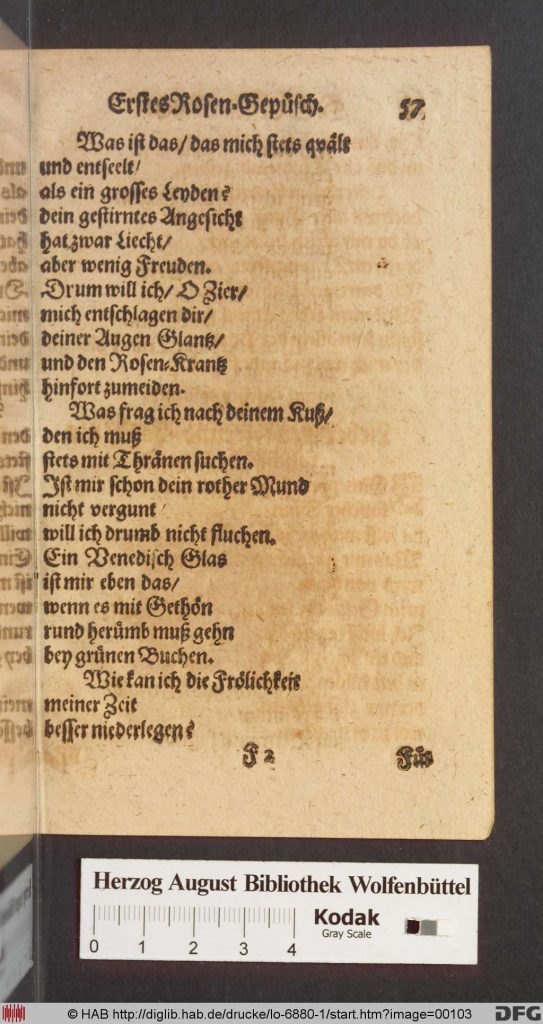 Erstes Rosen-Gepüsch. 57
Was ist das/ das mich stets qvält
und entseelt/
als ein grosses Leyden?
dein gestirntes Angesicht
hat zwar Liecht/
aber wenig Freuden.
Drum will ich/ O Zier/
mich entschlagen dir/
deiner Augen Glantz/
und den Rosen-Krantz
hinfort zumeiden.
Was frag ich nach deinem Kuß/
den ich muß
stets mit Thränen suchen.
Ist mir schon dein rother Mund
nicht vergunt/
will ich drumb nicht fluchen.
Ein Venedisch Glas
ist mir eben das/
wenn es mit Gethön
rund herümb muß gehn
bey grünen Buchen.
Wie kan ich die Frölichkeit
meiner Zeit
besser niederlegen?
F 2 Für
Herzog August Bibliothek Wolfenbüttel
0 1 2 3 4
Kodak
Gray Scale
© HAB http://diglib.hab.de/drucke/lo-6880-1/start.htm?image=00103
DFG